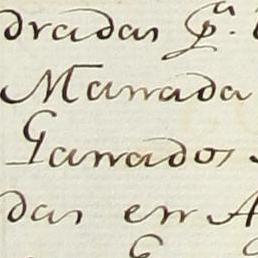 dradas p.ª
Manada
Ganados
das en A